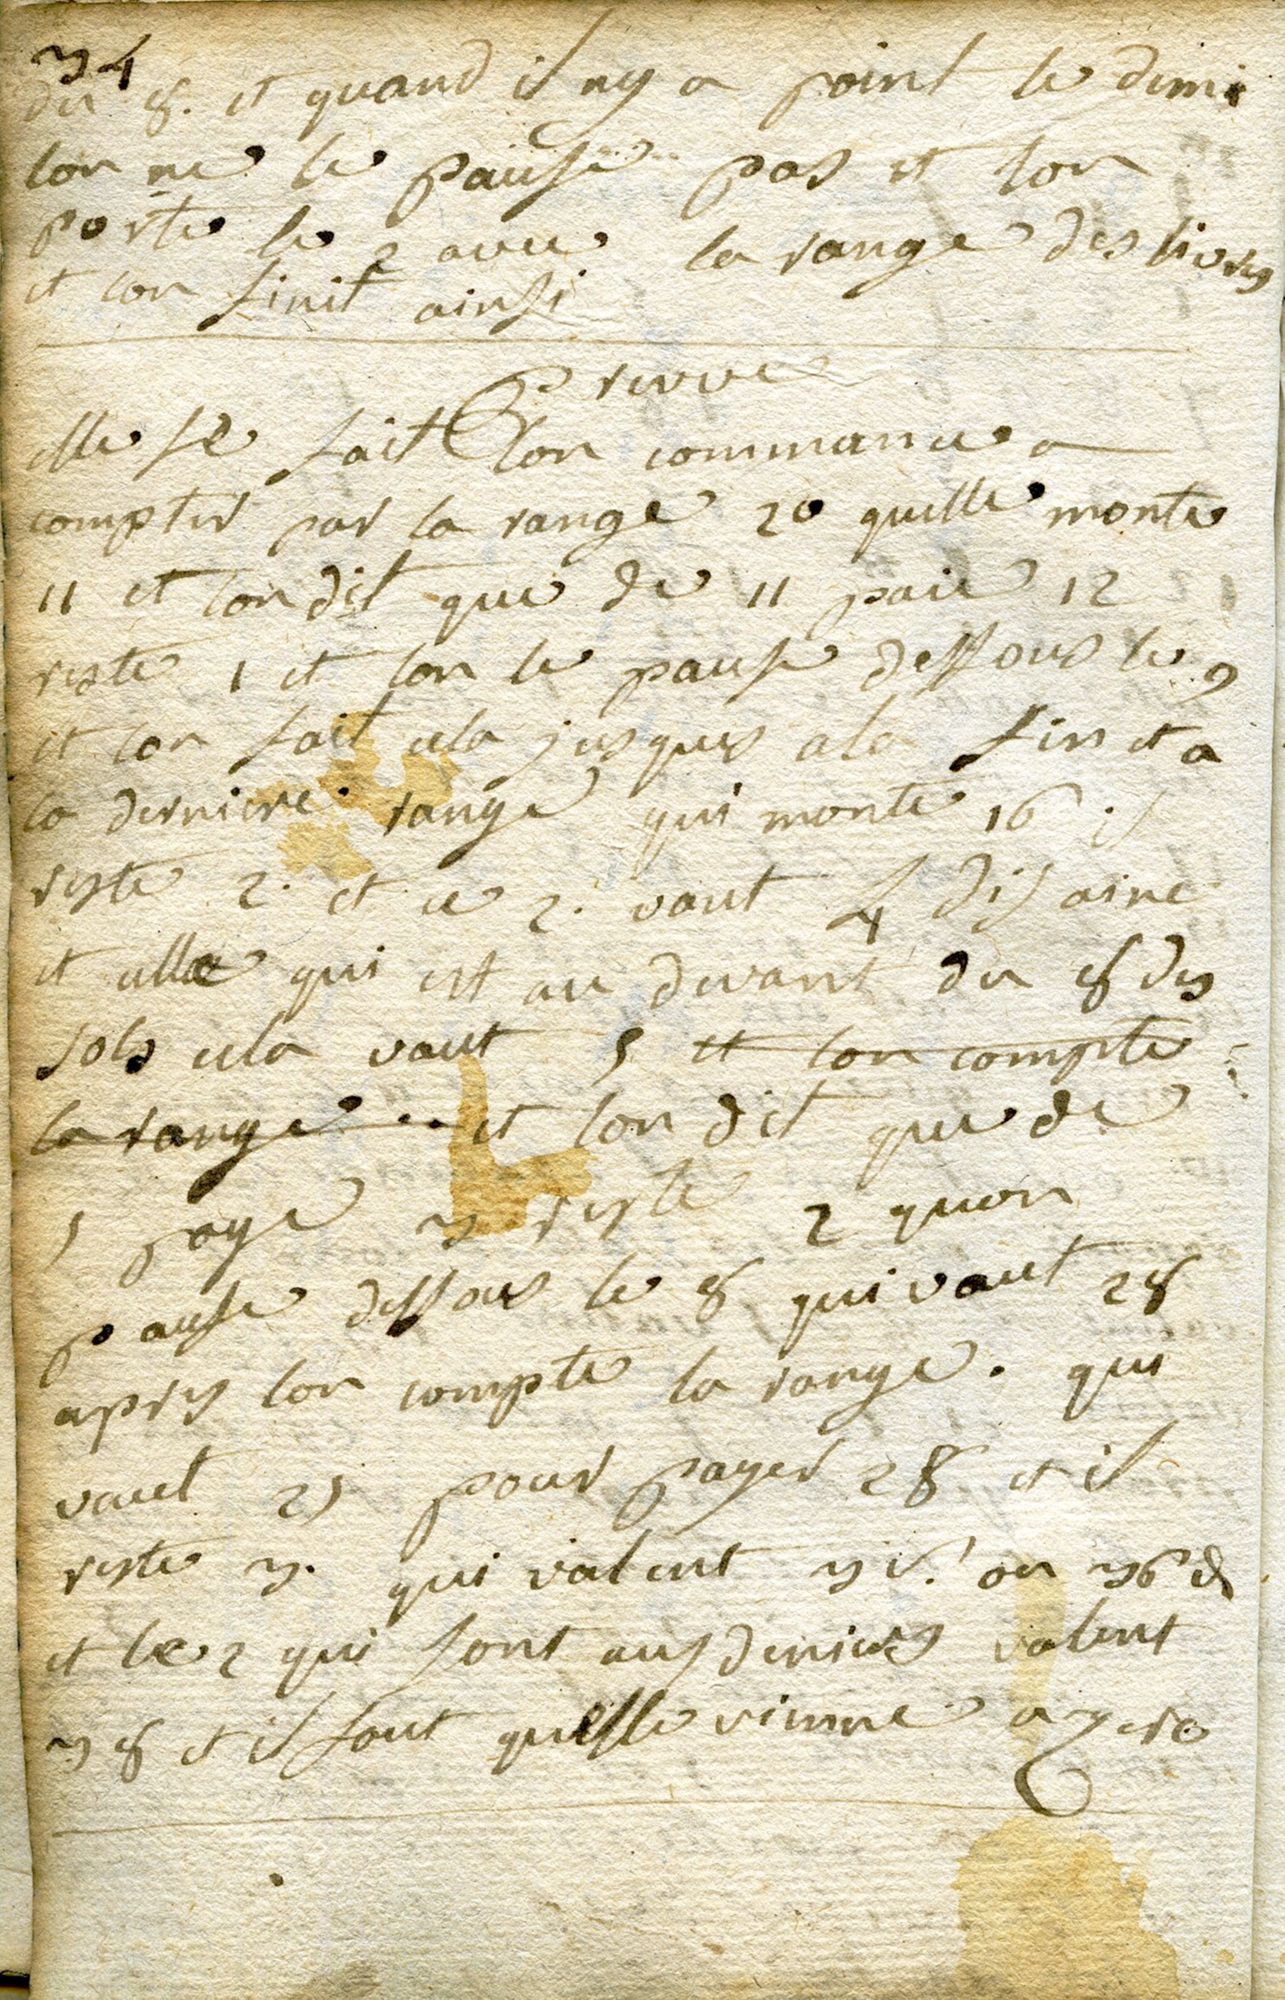 34
du 8. et quand il ny a point le dimi
lon ne le pause pas et lon
porte le 2 avec la range des livres
et lon finit ainsi
Preuve
elle se fait lon commance a
compter par la range 20 quelle monte
11 et lon dit que de 11 paie 12
reste 1 et lon le pause dessous le 9
et lon fait cela jusques a la fin et a
la derniere range qui monte 16 il
reste 2. et ce 2. vaut 4 disaine
et celle qui est au devant du 8 des
sols cela vaut 5 et lon compte
la range .. et lon dit que de
5 paye 3 reste 2 quon
pause dessous le 8 qui vaut 28
apres lon compte la range. qui
vaut 25 pour payer 28 et il
reste 3. qui valent 3 s. ou 36 d
et le 2 qui sont aus deniers valent
38 et il faut quelle vienne a zero